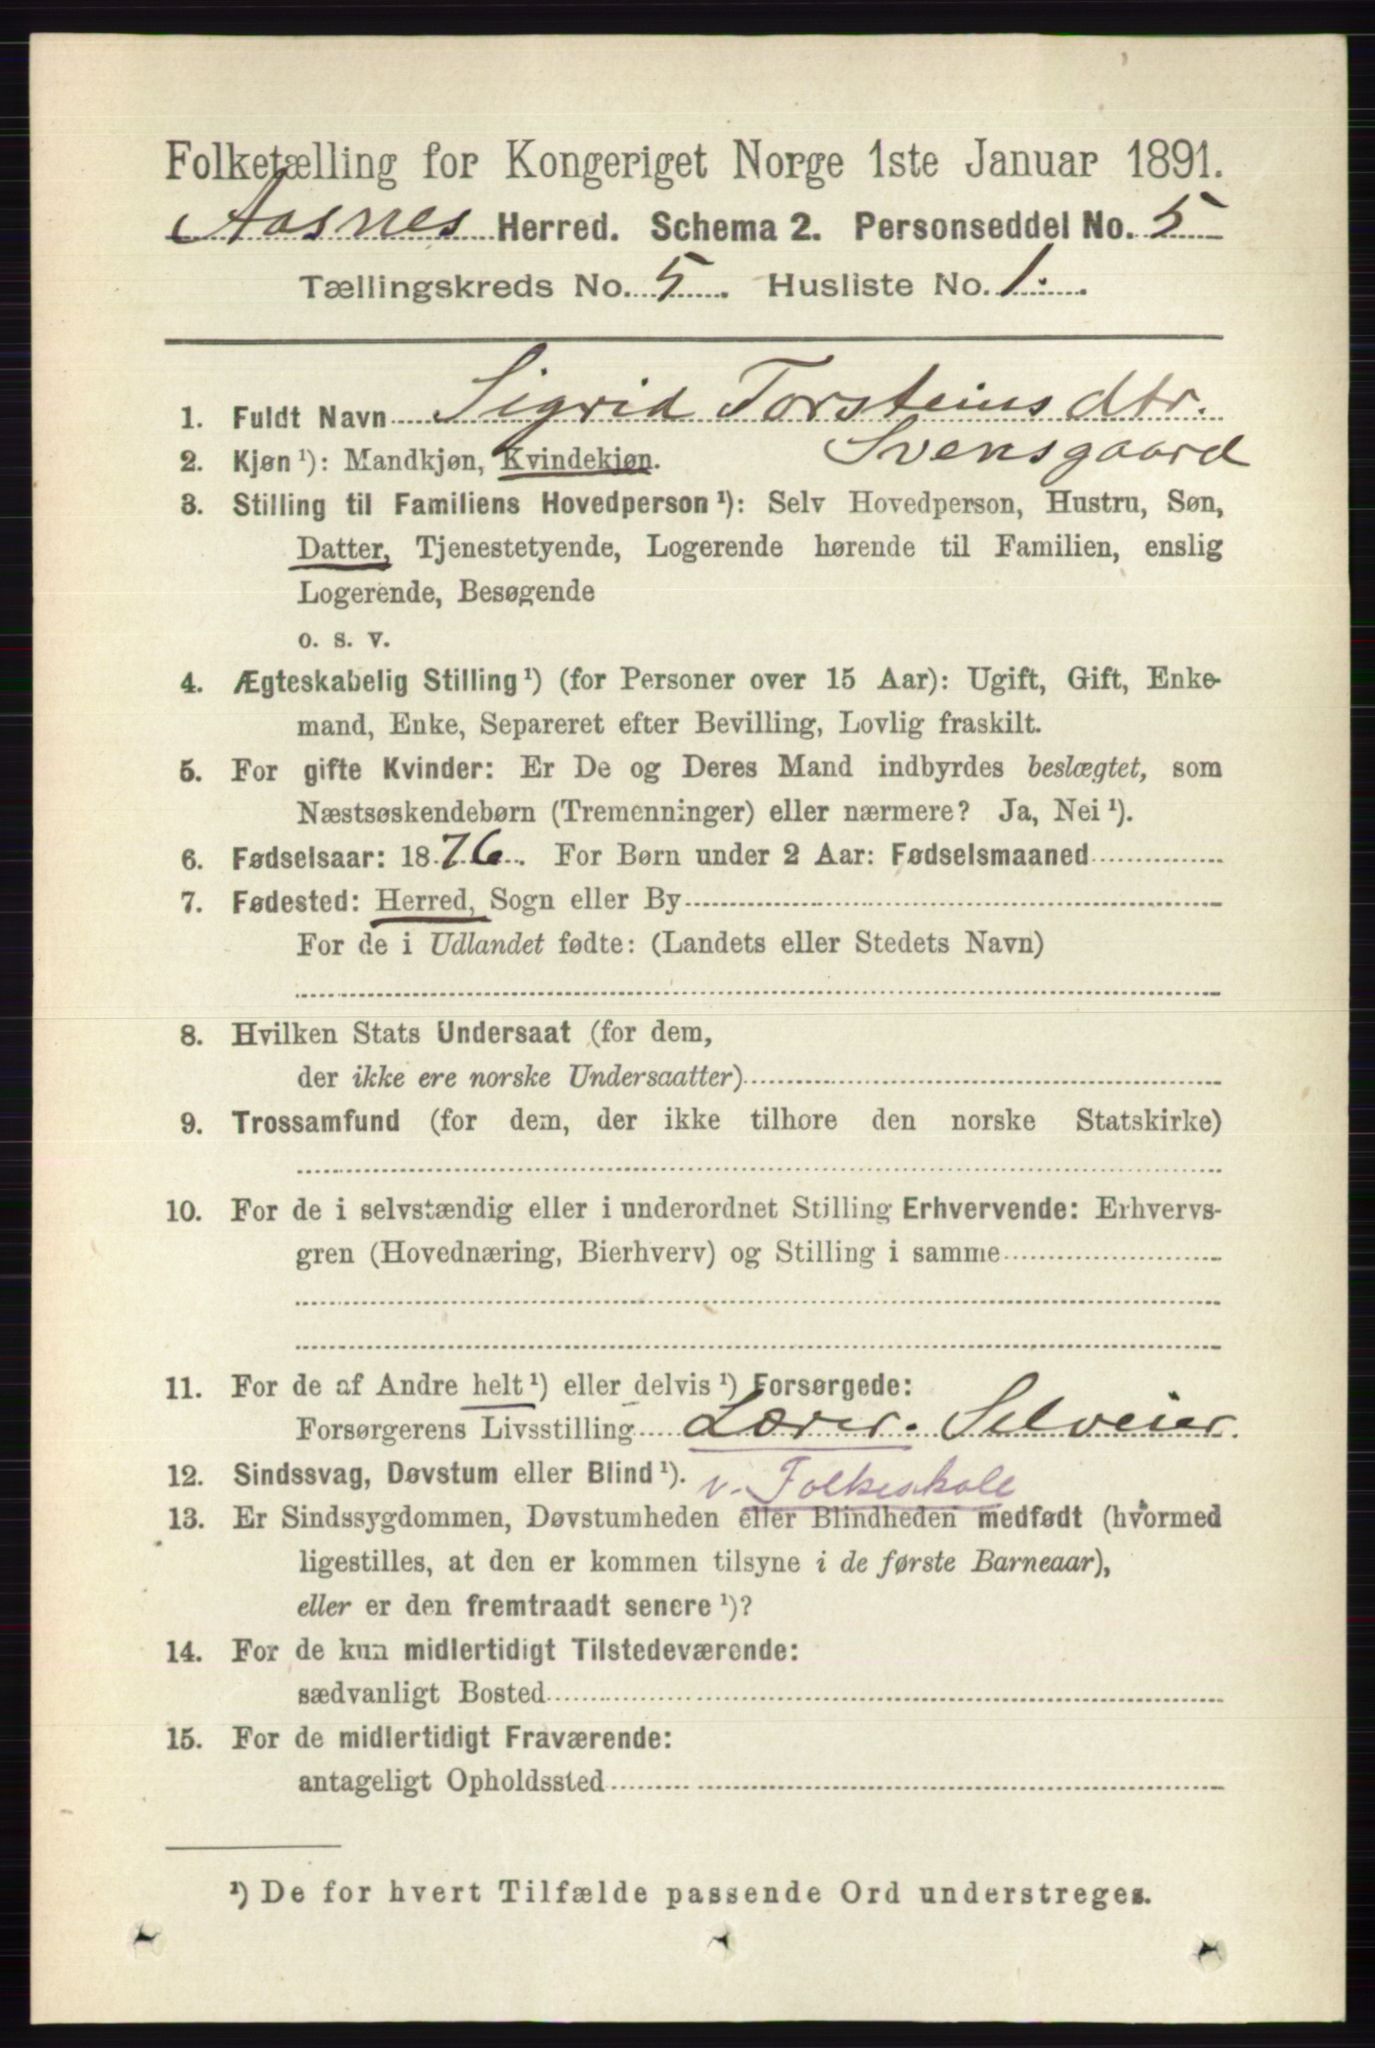 Folketælling for Kongeriget Norge 1ste Januar 1891.
Aasnes Herred. Schema 2. Personseddel No. 5
Tællingskreds No. 5. Husliste No. 1.
1. Fuldt Navn Sigrid Torsteins dtr.
Svensgaard
2. Kjøn ¹): Mandkjøn, Kvindekjøn.
3. Stilling til Familiens Hovedperson ¹): Selv Hovedperson, Hustru, Søn,
Datter, Tjenestetyende, Logerende hørende til Familien, enslig
Logerende, Besøgende
o. s. v.
4. Ægteskabelig Stilling ¹) (for Personer over 15 Aar): Ugift, Gift, Enke-
mand, Enke, Separeret efter Bevilling, Lovlig fraskilt.
5. For gifte Kvinder: Er De og Deres Mand indbyrdes beslægtet, som
Næstsøskendebørn (Tremenninger) eller nærmere? Ja, Nei ¹).
6. Fødselsaar: 1876. For Børn under 2 Aar: Fødselsmaaned
7. Fødested: Herred, Sogn eller By
For de i Udlandet fødte: (Landets eller Stedets Navn)
8. Hvilken Stats Undersaat (for dem,
der ikke ere norske Undersaatter)
9. Trossamfund (for dem, der ikke tilhøre den norske Statskirke)
10. For de i selvstændig eller i underordnet Stilling Erhvervende: Erhvervs-
gren (Hovednæring, Bierhverv) og Stilling i samme
11. For de af Andre helt ¹) eller delvis ¹) Forsørgede:
Forsørgerens Livsstilling Lærer. Selveier.
12. Sindssvag, Døvstum eller Blind ¹). v. Folkeskole
13. Er Sindssygdommen, Døvstumheden eller Blindheden medfødt (hvormed
ligestilles, at den er kommen tilsyne i de første Barneaar),
eller er den fremtraadt senere ¹)?
14. For de kun midlertidigt Tilstedeværende:
sædvanligt Bosted
15. For de midlertidigt Fraværende:
antageligt Opholdssted
¹) De for hvert Tilfælde passende Ord understreges.